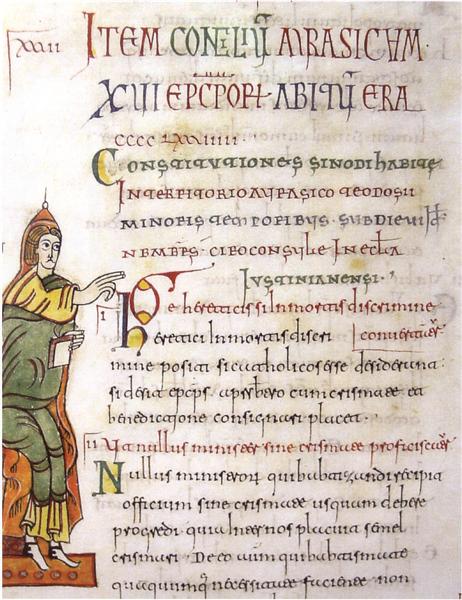 XXII
ITEM CONCILIŪ ARASICUM
XVII EPCPOR ABITŪ ERA
CCCC LXXVIIII
CONSTITUTIONES SINODI HABITE
IN TERRITORIO AURASICO TEODOSII
MINORIS TEMPORIBUS SUB DIE VI ID
NBMBRS CIRO CONSULE IN ECLA
IUSTINIANENSI
I De hereticis si in mortis discrimine
convertuntr
heretici in mortis discri
mine positi si catholicos esse desiderant
si desit epcps a prbro cum crismate et
benedictione consignari placet
II Ut nullus minister sine crismate proficiscatr
Nullus ministror qui babtizandi recipit
officium sine crismate usquam debere
progredi quia inter nos placuit semel
crismari. De eo autem qui babtismate
quacumq necessitate faciente non